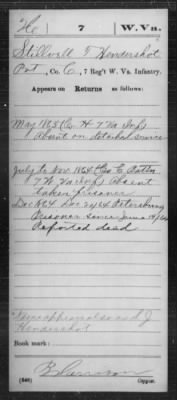 He 7 W.Va.
Stillwell T Hendershot
Pvt, Co. C, 7 Reg't W. Va. Infantry.
Appears on Returns as follows:
May 1865 (Co H 7 Va Inf)
Absent on detached service
July to Nov 1864 (Co C Battn
7 W Va Inf) Absent
taken prisoner
Dec 1864 Dec 24/64 Petersburg
Prisoner since June
Reported dead
Name appears also as J
Hendershot
Book mark:
(546) Copyist.